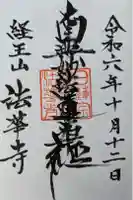 令和六年十月十二日
南無妙法蓮華経
経王山 法華寺